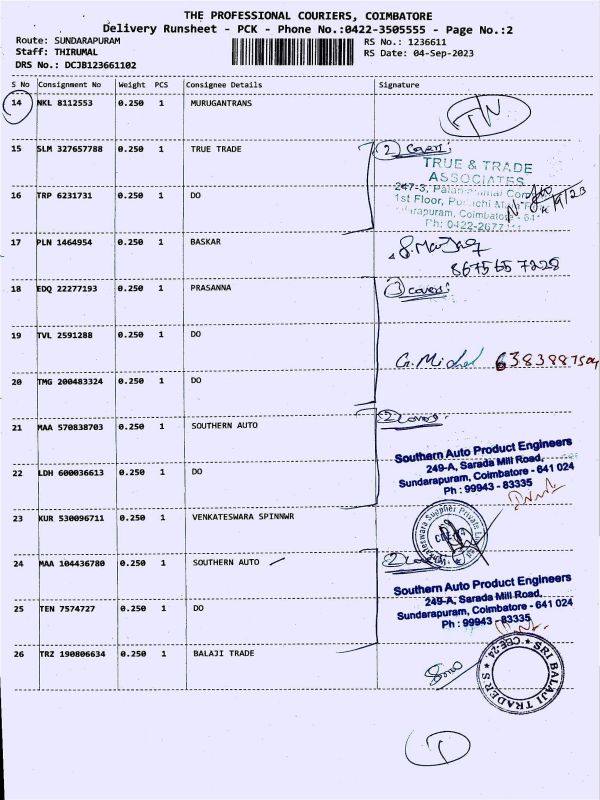 THE PROFESSIONAL COURIERS, COIMBATORE
Delivery Runsheet - PCK - Phone No.:0422-3505555 - Page No.:2
Route: SUNDARAPURAM RS No.: 1236611
Staff: THIRUMAL RS Date: 04-Sep-2023
DRS No.: DCJB123661102
S No Consignment No Weight PCS Consignee Details Signature
14 NKL 8112553 0.250 1 MURUGANTRANS
15 SLM 327657788 0.250 1 TRUE TRADE 2 covers:
TRUE & TRADE
ASSOCIATES
16 TRP 6231731 0.250 1 DO 247-3,
1st Floor,
Coimbatore
Ph: 0422-2677
17 PLN 1464954 0.250 1 BASKAR
8675657228
18 EDQ 22277193 0.250 1 PRASANNA 3 covers:
19 TVL 2591288 0.250 1 DO
G. Michel
20 TMG 200483324 0.250 1 DO
21 MAA 570838703 0.250 1 SOUTHERN AUTO 2 covers:
Southern Auto Product Engineers
249-A, Sarada Mill Road,
22 LDH 600036613 0.250 1 DO Sundarapuram, Coimbatore - 641 024
Ph : 99943 - 83335
23 KUR 530096711 0.250 1 VENKATESWARA SPINNWR
24 MAA 104436780 0.250 1 SOUTHERN AUTO 2 covers
Southern Auto Product Engineers
249-A, Sarada Mill Road,
25 TEN 7574727 0.250 1 DO Sundarapuram, Coimbatore - 641 024
Ph : 99943 - 83335
26 TRZ 190806634 0.250 1 BALAJI TRADE
SRI BALAJI TRADERS
CBE-24